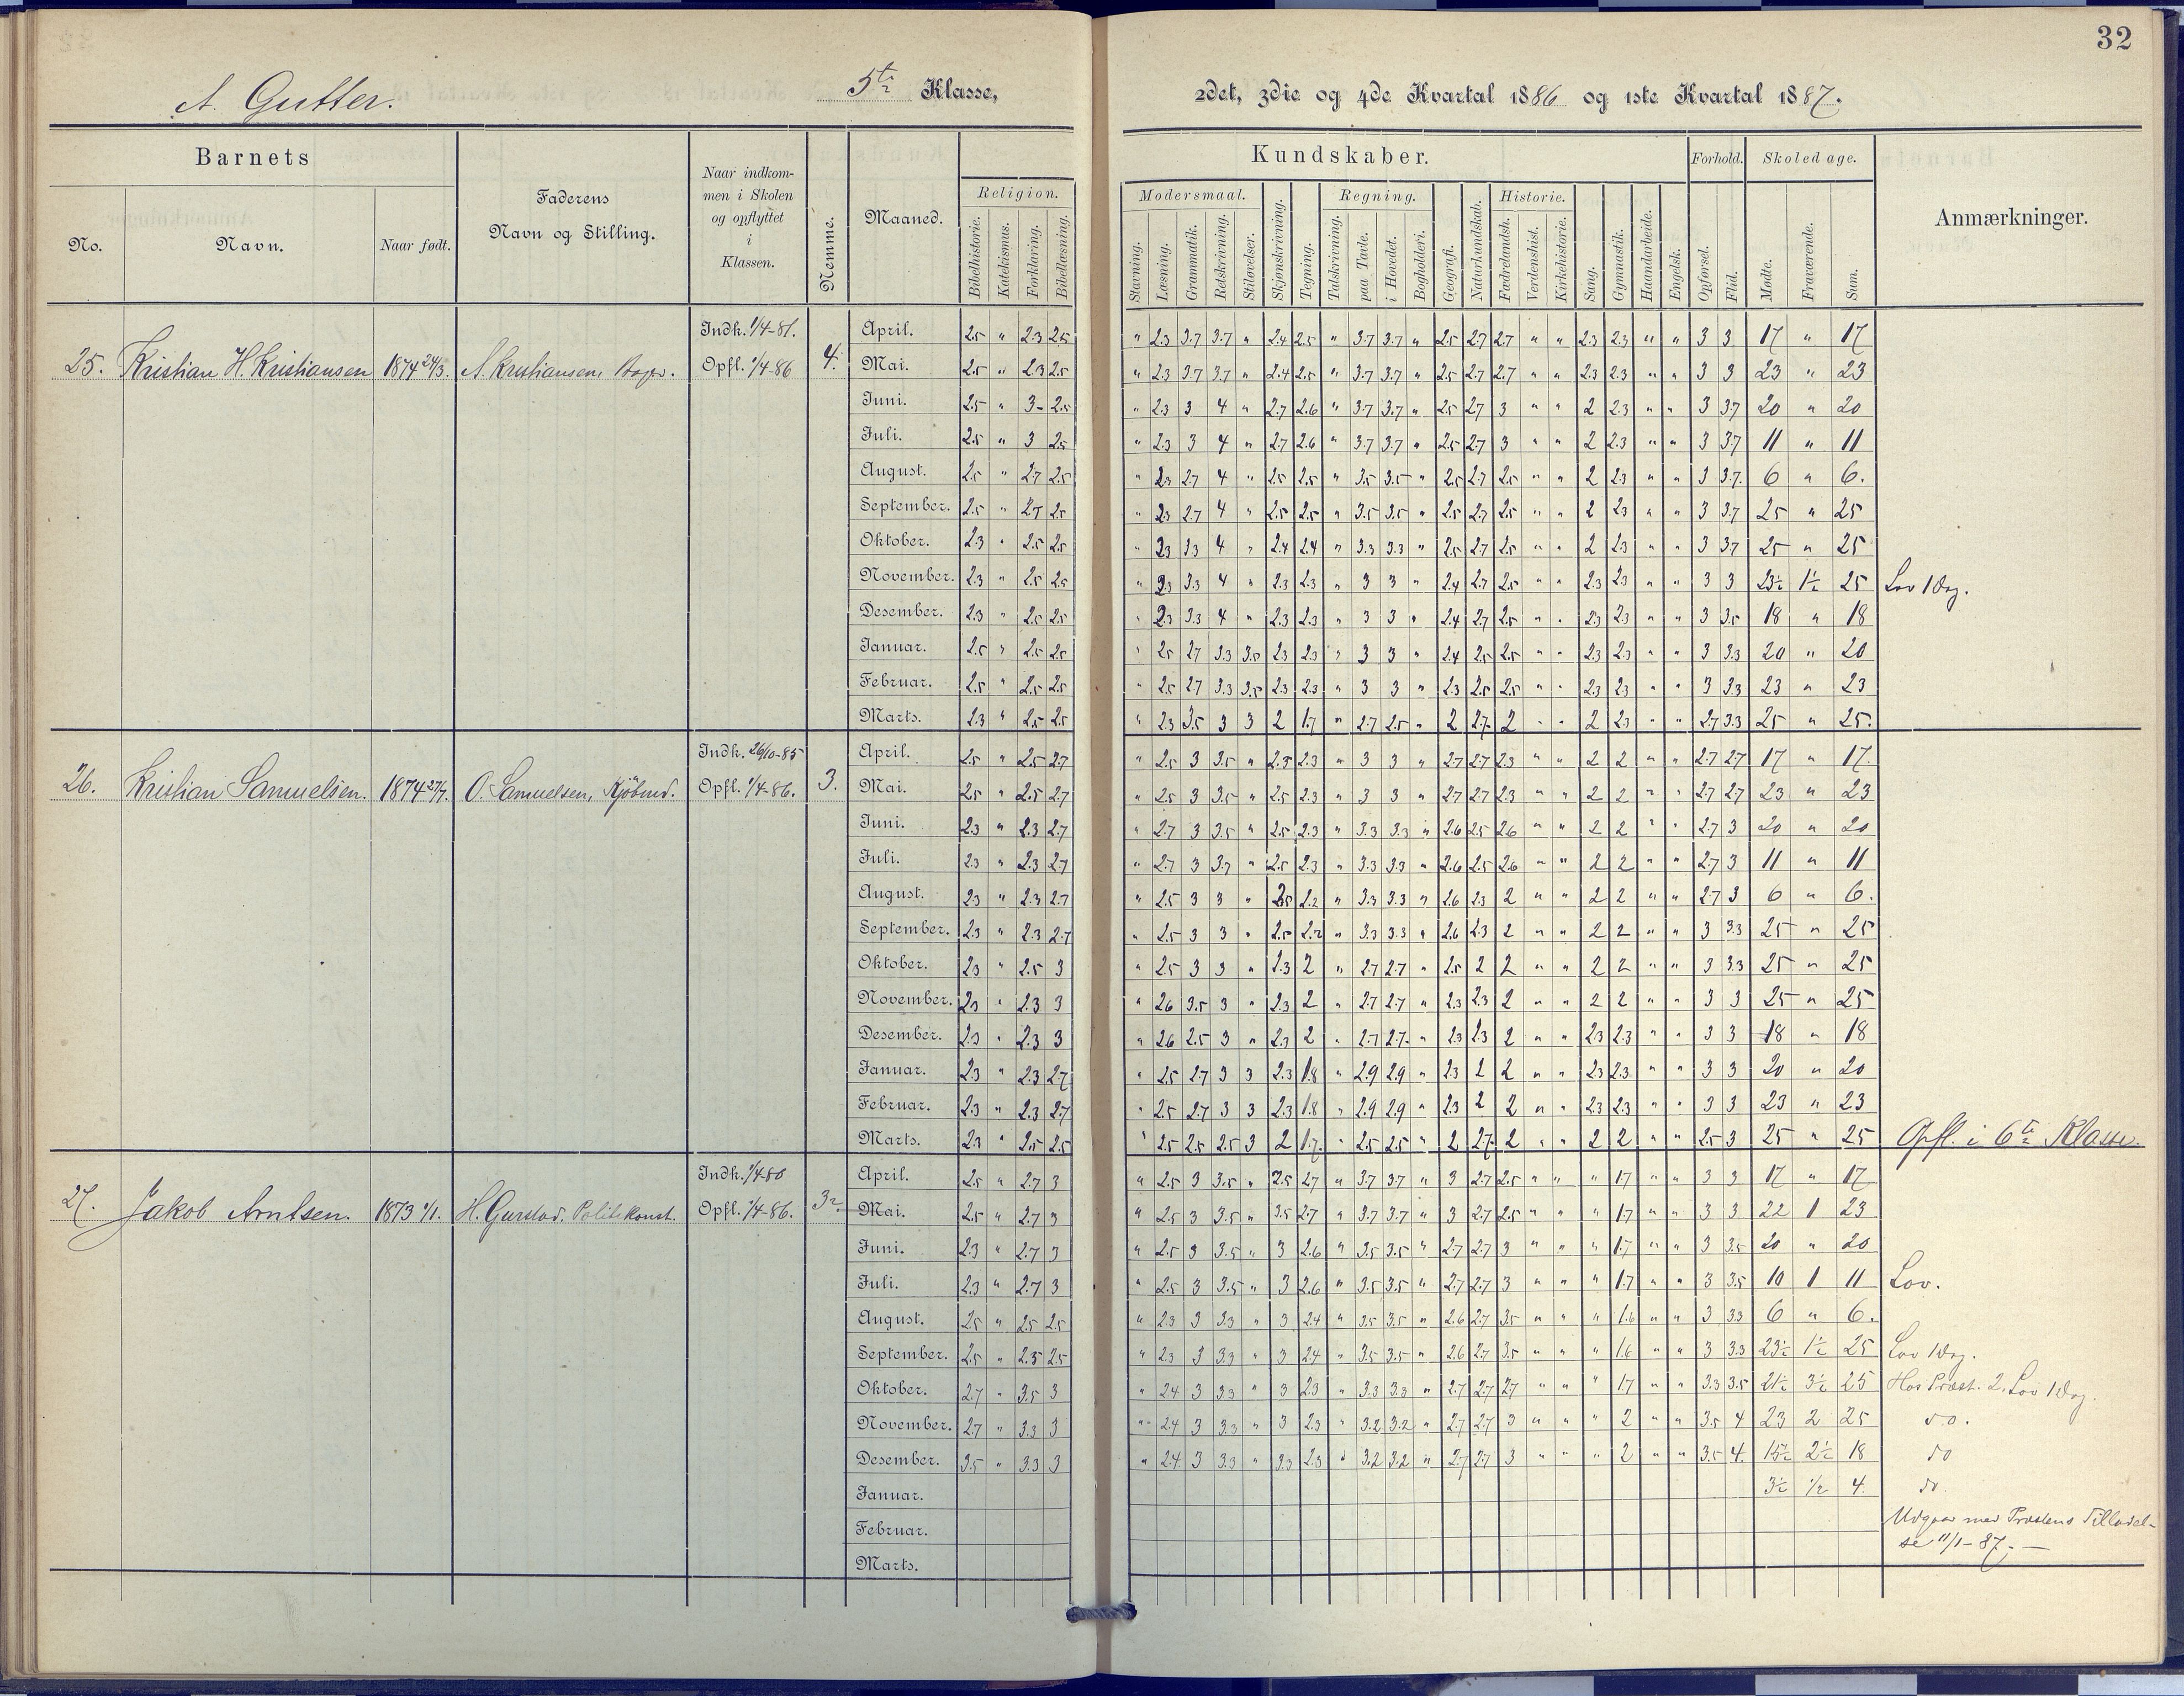 32
A. Gutter. 5te Klasse, 2det, 3die og 4de Kvartal 1886 og 1ste Kvartal 1887.
Barnets
No.
Navn.
Naar født.
Faderens
Navn og Stilling.
Naar indkom-
men i Skolen
og opflyttet
i
Klassen.
Nemme.
Maaned.
Religion.
Bibelhistorie.
Katekismus.
Forklaring.
Bibellæsning.
Kundskaber.
Modersmaal.
Stavning.
Læsning.
Grammatik.
Retskrivning.
Stiløvelser.
Skjønskrivning.
Tegning.
Regning.
Talskrivning.
paa Tavle.
i Hovedet.
Bogholderi.
Geografi.
Naturkundskab.
Historie.
Fædrelandsh.
Verdenshist.
Kirkehistorie.
Sang.
Gymnastik.
Haandarbeide.
Engelsk.
Forhold.
Opførsel.
Flid.
Skoledage.
Mødte.
Fraværende.
Sum.
Anmærkninger.
25. Kristian H. Kristiansen 1874 24/3. A. Kristiansen, Bager. Indk. 1/4-81. Opfl. 1/4-86 4.
April. 2.5 " 2.3 2.5 " 2.3 3.7 3.7 " 2.4 2.5 " 3.7 3.7 " 2.5 2.7 2.7 " " 2.3 2.3 " " 3 3 17 " 17
Mai. 2.5 " 2.3 2.5 " 2.3 3.7 3.7 " 2.4 2.5 " 3.7 3.7 " 2.5 2.7 2.7 " " 2.3 2.3 " " 3 3 23 " 23
Juni. 2.5 " 3 2.5 " 2.3 3 4 " 2.7 2.6 " 3.7 3.7 " 2.5 2.7 3 " " 2 2.3 " " 3 3.7 20 " 20
Juli. 2.5 " 3 2.5 " 2.3 3 4 " 2.7 2.6 " 3.7 3.7 " 2.5 2.7 3 " " 2 2.3 " " 3 3.7 11 " 11
August. 2.5 " 2.7 2.5 " 2.3 2.7 4 " 2.5 2.5 " 3.5 3.5 " 2.5 2.7 2.5 " " 2 2.3 " " 3 3.7 6 " 6.
September. 2.5 " 2.7 2.5 " 2.3 2.7 4 " 2.5 2.5 " 3.5 3.5 " 2.5 2.7 2.5 " " 2 2.3 " " 3 3.7 25 " 25
Oktober. 2.3 " 2.5 2.5 " 2.3 3.3 4 " 2.4 2.4 " 3.3 3.3 " 2.5 2.7 2.5 " " 2 2.3 " " 3 3.7 25 " 25
November. 2.3 " 2.5 2.5 " 2.3 3.3 4 " 2.3 2.3 " 3 3 " 2.4 2.7 2.5 " " 2.3 2.3 " " 3 3 23½ 1½ 25 Lov 1 Dag.
Desember. 2.3 " 2.5 2.5 " 2.3 3.3 4 " 2.3 2.3 " 3 3 " 2.4 2.7 2.5 " " 2.3 2.3 " " 3 3.5 18 " 18
Januar. 2.5 " 2.5 2.5 " 2.5 2.7 3.3 3.5 2.3 2.3 " 3 3 " 2.4 2.5 2.5 " " 2.3 2.3 " " 3 3.3 20 " 20
Februar. 2.5 " 2.5 2.5 " 2.5 2.7 3.3 3.5 2.3 2.3 " 3 3 " 2.3 2.5 2.5 " " 2.3 2.3 " " 3 3.3 23 " 23
Marts. 2.3 " 2.5 2.5 " 2.3 3.5 3 3 2 1.7 " 2.7 2.5 " 2 2.7 2 " " 2 2.3 " " 2.7 3.3 25 " 25.
26. Kristian Samuelsen. 1874 27/7. O. Samuelsen, Kjøbmd. Indk. 26/10-85 Opfl. 1/4-86. 3.
April. 2.5 " 2.5 2.7 " 2.5 3 3.5 " 2.5 2.3 " 3 3 " 2.7 2.7 2.3 " " 2 2 " " 2.7 2.7 17 " 17.
Mai. 2.5 " 2.5 2.7 " 2.5 3 3.5 " 2.5 2.3 " 3 3 " 2.7 2.7 2.3 " " 2 2 " " 2.7 2.7 23 " 23
Juni. 2.3 " 2.3 2.7 " 2.7 3 3.5 " 2.5 2.3 " 3.3 3.3 " 2.6 2.5 2.6 " " 2 2 " " 2.7 3 20 " 20
Juli. 2.3 " 2.3 2.7 " 2.7 3 3.7 " 2.5 2.3 " 3.3 3.3 " 2.6 2.5 2.6 " " 2 2 " " 2.7 3 11 " 11
August. 2.3 " 2.3 2.7 " 2.5 3 3 " 2.5 2.2 " 3.3 3.3 " 2.6 2.3 2 " " 2 2 " " 2.7 3 6 " 6.
September. 2.3 " 2.3 2.7 " 2.5 3 3 " 2.5 2.2 " 3.3 3.3 " 2.6 2.3 2 " " 2 2 " " 3 3.3 25 " 25
Oktober. 2.3 " 2.5 3 " 2.5 3 3 " 2.3 2 " 2.7 2.7 " 2.5 2 2 " " 2 2 " " 3 3.3 25 " 25
November. 2.3 " 2.3 3 " 2.6 3.5 3 " 2.3 2 " 2.7 2.7 " 2.3 2.3 2 " " 2 2 " " 3 3 25 " 25
Desember. 2.3 " 2.3 3 " 2.6 2.5 3 " 2.3 2 " 2.7 2.7 " 2.3 2.3 2 " " 2.3 2.3 " " 3 3 18 " 18
Januar. 2.3 " 2.3 2.7 " 2.5 2.7 3 3 2.3 1.8 " 2.9 2.9 " 2.3 2 2 " " 2.3 2.3 " " 3 3 20 " 20
Februar. 2.3 " 2.3 2.7 " 2.5 2.7 3 3 2.3 1.8 " 2.9 2.9 " 2.3 2 2 " " 2.3 2.3 " " 3 3 23 " 23
Marts. 2.3 " 2.5 2.5 " 2.5 2.5 2.5 3 2 1.7 " 2.5 2.5 " 2 2.7 2 " " 2 2 " " 2.5 3 25 " 25 Opfl. i 6te Klasse.
27. Jakob Arntsen. 1873 1/1. H. Gurstad, Politikonst. Indk. 1/4-80 Opfl. 1/4-86. 3
April. 2.5 " 2.7 3 " 2.5 3 3.5 " 3.5 2.7 " 3.7 3.7 " 3 2.7 2.5 " " " 1.7 " " 3 3 17 " 17
Mai. 2.5 " 2.7 3 " 2.5 3 3.5 " 3.5 2.7 " 3.7 3.7 " 3 2.7 2.5 " " " 1.7 " " 3 3 22 1 23
Juni. 2.3 " 2.7 3 " 2.5 3 3.5 " 3 2.6 " 3.5 3.5 " 2.7 2.7 3 " " " 1.7 " " 3 3.5 20 " 20
Juli. 2.3 " 2.7 3 " 2.5 3 3.5 " 3 2.6 " 3.5 3.5 " 2.7 2.7 3 " " " 1.7 " " 3 3.5 10 1 11 Lov.
August. 2.5 " 2.5 2.5 " 2.3 3 3.3 " 3 2.4 " 3.5 3.5 " 2.6 2.7 3.5 " " " 1.6 " " 3 3.3 6 " 6.
September. 2.5 " 2.5 2.5 " 2.3 3 3.3 " 3 2.4 " 3.5 3.5 " 2.6 2.7 3.5 " " " 1.6 " " 3 3.3 23½ 1½ 25 Lov 1 Dag.
Oktober. 2.7 " 3.5 3 " 2.4 3 3.3 " 3 2.3 " 3.3 3.3 " 2.7 2.7 2.7 " " " 1.7 " " 3.3 3.5 21½ 3½ 25 Hos Præst. 2, Lov 1 Dag
November. 2.7 " 3.3 3 " 2.4 3 3.3 " 3 2.3 " 3.2 3.2 " 2.7 2.7 3 " " " 2 " " 3.5 4 23 2 25 do.
Desember. 3.5 " 3.3 3 " 2.4 3 3.3 " 3.3 2.3 " 3.2 3.2 " 2.7 2.7 3 " " " 2 " " 3.5 4. 15½ 2½ 18 do
Januar. 3½ 1/2 4. do.
Februar. Udgaar med Præstens Tilladel-
se 11/1-87.
Marts.